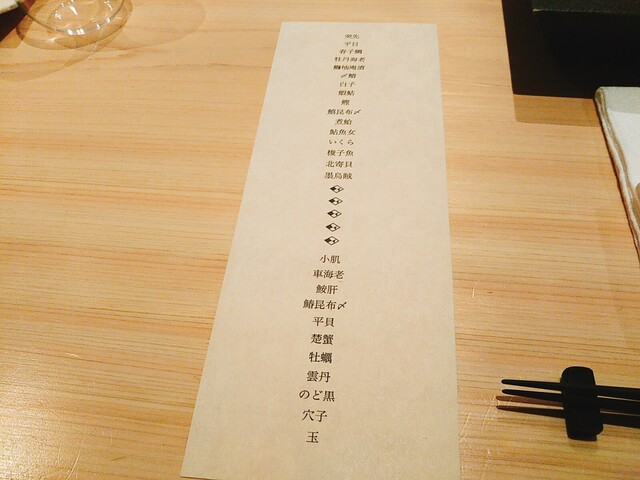 突先
平目
春子鯛
牡丹海老
鰤柚庵漬
〆鯖
白子
蝦蛄
鰹
鰆昆布〆
煮鮑
鮎魚女
いくら
梭子魚
北寄貝
墨烏賊
小肌
車海老
鮟肝
鰆昆布〆
平貝
楚蟹
牡蠣
雲丹
のど黒
穴子
玉